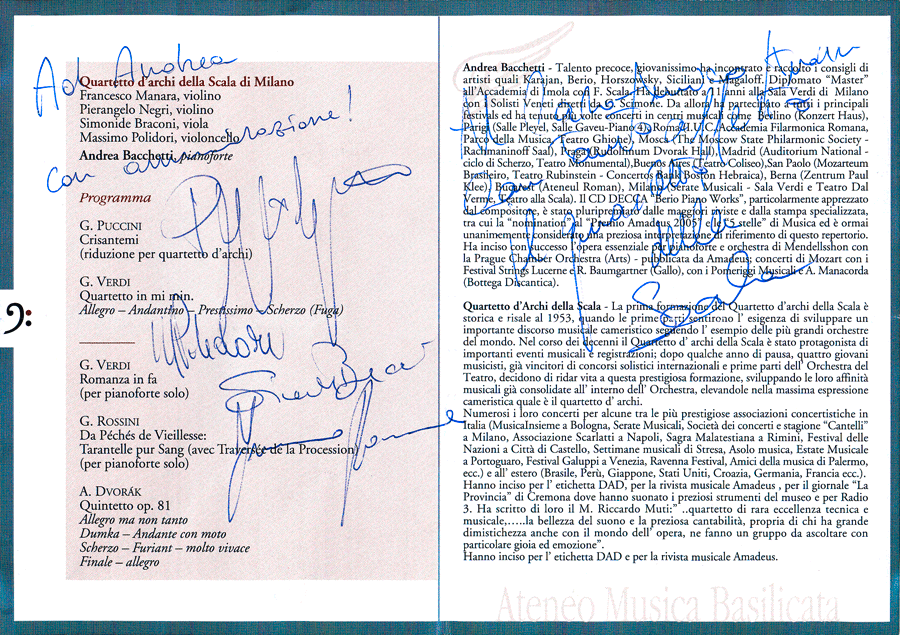 Ad Andrea
con ammirazione!
Quartetto d'archi della Scala di Milano
Francesco Manara, violino
Pierangelo Negri, violino
Simonide Braconi, viola
Massimo Polidori, violoncello
Andrea Bacchetti, pianoforte
Programma
G. PUCCINI
Crisantemi
(riduzione per quartetto d'archi)
G. VERDI
Quartetto in mi min.
Allegro – Andantino – Prestissimo – Scherzo (Fuga)
G. VERDI
Romanza in fa
(per pianoforte solo)
G. ROSSINI
Da Péchés de Vieillesse:
Tarantelle pur Sang (avec Traversée de la Procession)
(per pianoforte solo)
A. DVORÁK
Quintetto op. 81
Allegro ma non tanto
Dumka – Andante con moto
Scherzo – Furiant – molto vivace
Finale – allegro
MPolidori
Andrea Bacchetti - Talento precoce, giovanissimo ha incontrato e raccolto i consigli di
artisti quali Karajan, Berio, Horszowsky, Siciliani e Magaloff. Diplomato "Master"
all'Accademia di Imola con F. Scala. Ha debuttato a 11 anni alla Sala Verdi di Milano
con I Solisti Veneti diretti da C. Scimone. Da allora ha partecipato a tutti i principali
festival ed ha tenuto più volte concerti in centri musicali come Berlino (Konzert Haus),
Parigi (Salle Pleyel, Salle Gaveu-Piano 4), Roma I.U.C, Accademia Filarmonica Romana,
Parco della Musica, Teatro Ghione), Mosca (The Moscow State Philarmonic Society -
Rachmaninoff Saal), Praga (Rudolfinum Dvorak Hall), Madrid (Auditorium National -
ciclo di Scherzo, Teatro Monumental),Buenos Aires (Teatro Coliseo),San Paolo (Mozarteum
Brasileiro, Teatro Rubinstein - Concertos Bank Boston Hebraica), Berna (Zentrum Paul
Klee), Bucarest (Ateneul Roman), Milano (Serate Musicali - Sala Verdi e Teatro Dal
Verme, Teatro alla Scala). Il CD DECCA "Berio Piano Works", particolarmente apprezzato
dal compositore, è stato pluripremiato dalle maggiori riviste e dalla stampa specializzata,
tra cui la "nomination" al "Premio Amadeus 2005" e le "5 stelle" di Musica ed è ormai
unanimemente considerato una preziosa interpretazione di riferimento di questo repertorio.
Ha inciso con successo l'opera essenziale per pianoforte e orchestra di Mendellsshon con
la Prague Chamber Orchestra (Arts) - pubblicata da Amadeus; concerti di Mozart con i
Festival Strings Lucerne e R. Baumgartner (Gallo), con i Pomeriggi Musicali e A. Manacorda
(Bottega Discantica).
Quartetto d'Archi della Scala - La prima formazione del Quartetto d'archi della Scala è
storica e risale al 1953, quando le prime parti sentirono l' esigenza di sviluppare un
importante discorso musicale cameristico seguendo l' esempio delle più grandi orchestre
del mondo. Nel corso dei decenni il Quartetto d' archi della Scala è stato protagonista di
importanti eventi musicali e registrazioni; dopo qualche anno di pausa, quattro giovani
musicisti, già vincitori di concorsi solistici internazionali e prime parti dell' Orchestra del
Teatro, decidono di ridar vita a questa prestigiosa formazione, sviluppando le loro affinità
musicali già consolidate all' interno dell' Orchestra, elevandole nella massima espressione
cameristica quale è il quartetto d' archi.
Numerosi i loro concerti per alcune tra le più prestigiose associazioni concertistiche in
Italia (MusicaInsieme a Bologna, Serate Musicali, Società dei concerti e stagione "Cantelli"
a Milano, Associazione Scarlatti a Napoli, Sagra Malatestiana a Rimini, Festival delle
Nazioni a Città di Castello, Settimane musicali di Stresa, Asolo musica, Estate Musicale
a Portoguaro, Festival Galuppi a Venezia, Ravenna Festival, Amici della musica di Palermo,
ecc.) e all' estero (Brasile, Perù, Giappone, Stati Uniti, Croazia, Germania, Francia ecc.).
Hanno inciso per l' etichetta DAD, per la rivista musicale Amadeus , per il giornale "La
Provincia" di Cremona dove hanno suonato i preziosi strumenti del museo e per Radio
3. Ha scritto di loro il M. Riccardo Muti:" ..quartetto di rara eccellenza tecnica e
musicale,.....la bellezza del suono e la preziosa cantabilità, propria di chi ha grande
dimistichezza anche con il mondo dell' opera, ne fanno un gruppo da ascoltare con
particolare gioia ed emozione".
Hanno inciso per l' etichetta DAD e per la rivista musicale Amadeus.
Il quartetto
della
Scala
Ateneo Musica Basilicata